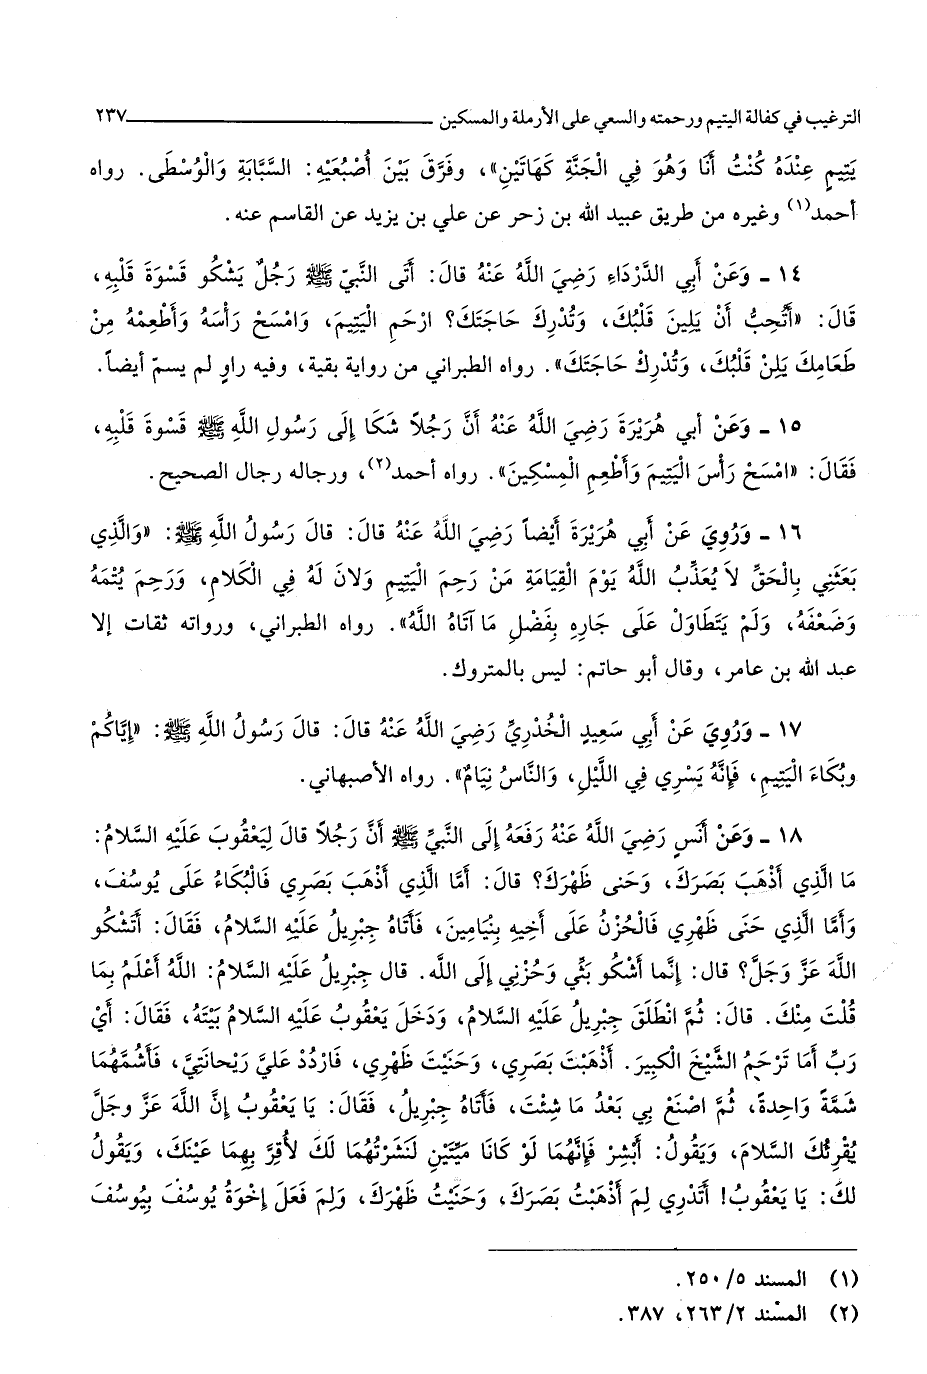 الترغيب في كفالة اليتيم ورحمته والسعي على الأرملة والمسكين ٢٣٧
يَتِيمٍ عِنْدَهُ كُنْتُ أَنَا وَهُوَ فِي الْجَنَّةِ كَهَاتَيْنِ»، وفَرَّقَ بَيْنَ أُصْبُعَيْهِ: السَّبَّابَةِ وَالْوُسْطَى. رواه
أحمد(١) وغيره من طريق عبيد الله بن زحر عن علي بن يزيد عن القاسم عنه.
١٤ ـ وَعَنْ أَبِي الدَّرْدَاءِ رَضِيَ اللَّهُ عَنْهُ قالَ: أَتَى النَّبِيّ ﷺ رَجُلٌ يَشْكُو قَسْوَةَ قَلْبِهِ،
قَالَ: «أَتُحِبُّ أَنْ يَلِينَ قَلْبُكَ، وَتُدْرِكَ حَاجَتَكَ؟ ارْحَمِ الْيَتِيمَ، وَامْسَحْ رَأْسَهُ وَأَطْعِمْهُ مِنْ
طَعَامِكَ يَلِنْ قَلْبُكَ، وَتُدْرِكْ حَاجَتَكَ». رواه الطبراني من رواية بقية، وفيه راوٍ لم يسمّ أيضاً.
١٥ ـ وَعَنْ أبي هُرَيْرَةَ رَضِيَ اللَّهُ عَنْهُ أَنَّ رَجُلاً شَكَا إِلَى رَسُولِ اللَّهِ ﷺ قَسْوَةَ قَلْبِهِ،
فَقَالَ: «امْسَحْ رَأْسَ الْيَتِيمَ وَأَطْعِمِ الْمِسْكِينَ». رواه أحمد(٢)، ورجاله رجال الصحيح.
١٦ ـ وَرُوِيَ عَنْ أَبِي هُرَيْرَةَ أَيْضاً رَضِيَ اللَّهُ عَنْهُ قالَ: قالَ رَسُولُ اللَّهِ ﷺ: «وَالَّذِي
بَعَثَنِي بِالْحَقِّ لاَ يُعَذِّبُ اللَّهُ يَوْمَ الْقِيَامَةِ مَنْ رَحِمَ الْيَتِيمِ وَلانَ لَهُ فِي الْكَلامِ، وَرَحِمَ يُتْمَهُ
وَضَعْفَهُ، وَلَمْ يَتَطَاوَلْ عَلَى جَارِهِ بِفَضْلِ مَا آتَاهُ اللَّهُ». رواه الطبراني، ورواته ثقات إلا
عبد الله بن عامر، وقال أبو حاتم: ليس بالمتروك.
١٧ ـ وَرُوِيَ عَنْ أَبِي سَعِيدٍ الْخُدْرِيِّ رَضِيَ اللَّهُ عَنْهُ قالَ: قالَ رَسُولُ اللَّهِ ﷺ: «إِيَّاكُمْ
وبُكَاءَ الْيَتِيمِ، فَإِنَّهُ يَسْرِي فِي اللَّيْلِ، وَالنَّاسُ نِيَامٌ». رواه الأصبهاني.
١٨ ـ وَعَنْ أَنَسٍ رَضِيَ اللَّهُ عَنْهُ رَفَعَهُ إِلَى النَّبِيِّ ﷺ أَنَّ رَجُلاً قالَ لِيَعْقُوبَ عَلَيْهِ السَّلامُ:
مَا الَّذِي أَذْهَبَ بَصَرَكَ، وَحَنى ظَهْرَكَ؟ قالَ: أَمَّا الَّذِي أَذْهَبَ بَصَرِي فَالْبُكَاءُ عَلَى يُوسُفَ،
وَأَمَّا الَّذِي حَنَى ظَهْرِي فَالْحُزْنُ عَلَى أَخِيهِ بِنْيَامِينَ، فَأَتَاهُ جِبْرِيلُ عَلَيْهِ السَّلامُ، فَقَالَ: أَتَشْكُو
اللَّهَ عَزَّ وَجَلَّ؟ قال: إِنَّما أَشْكُو بَثِّي وَحُزْنِي إِلَى اللَّه. قال جِبْرِيلُ عَلَيْهِ السَّلامُ: اللَّهُ أَعْلَمُ بِمَا
قُلْتَ مِنْكَ. قالَ: ثُمَّ انْطَلَقَ جِبْرِيلُ عَلَيْهِ السَّلامُ، وَدَخَلَ يَعْقُوبُ عَلَيْهِ السَّلامُ بَيْتَهُ، فَقَالَ: أَيْ
رَبِّ أَمَا تَرْحَمُ الشَّيْخَ الْكَبِيرَ. أَذْهَبْتَ بَصَرِي، وَحَنَيْتَ ظَهْرِي، فَارْدُدْ عَلَيَّ رَيْحَانَتَيَّ، فَأَشُمَّهُمَا
شَمَّةً وَاحِدةً، ثُمَّ اصْنَعْ بِي بَعْدُ مَا شِئْتَ، فَأَتَاهُ جِبْرِيلُ، فَقَالَ: يَا يَعْقُوبُ إِنَّ اللَّهَ عَزَّ وجَلَّ
يُقْرِئُكَ السَّلامَ، وَيَقُولُ: أَبْشِرْ فَإِنَّهُمَا لَوْ كَانَا مَيِّتَيْنِ لَنَشَرْتُهُمَا لَكَ لأُقِرَّ بِهِمَا عَيْنَكَ، وَيَقُولُ
لكَ: يَا يَعْقُوبُ! أَتَدْرِي لِمَ أَذْهَبْتُ بَصَرَكَ، وَحَنَيْتُ ظَهْرَكَ، وَلِمَ فَعَلَ إِخْوَةُ يُوسُفَ بِيُوسُفَ
(١) المسند ٥/ ٢٥٠.
(٢) المسْند ٢/ ٢٦٣، ٣٨٧.